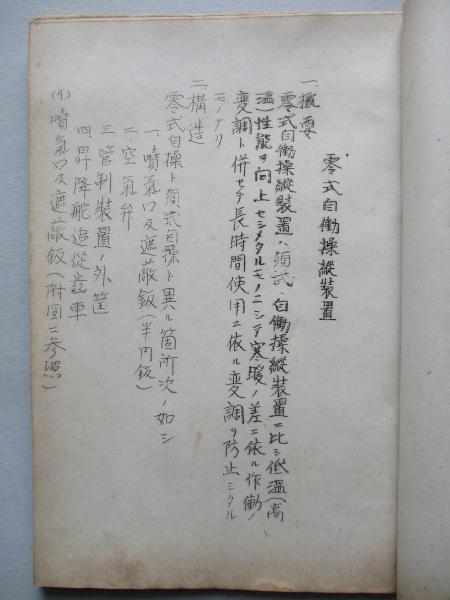 零式自働操縦装置
一、概要
零式自働操縦装置ハ須式自働操縦装置ニ比シ低温(高
温)性能ヲ向上セシメタルモノニシテ寒暖ノ差ニ依ル作動ノ
変調ト併セテ長時間使用ニ依ル変調ヲ防止シタル
モノナリ
二、構造
零式自操ト須式自操ト異ル箇所次ノ如シ
一、噴氣口及遮蔽鈑(半円鈑)
二、空氣弁
三、管制装置ノ外筐
四、昇降舵追従歯車
(イ)噴氣口及遮蔽鈑(附図二参照)